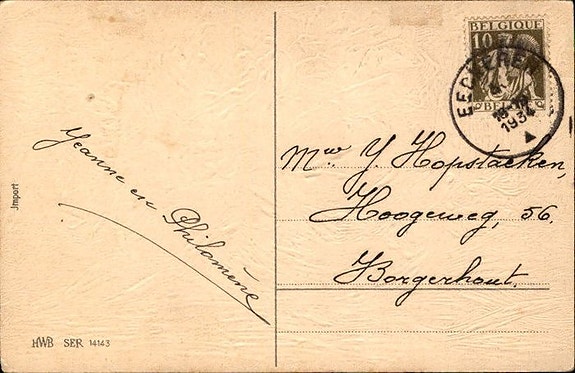 BELGIQUE
10
BELGIË
EECKEREN
1934
Jeanne en Philomène
Mw J. Hopstacken,
Hoogeweg, 56.
Borgerhout.
Jmport
HWB SER 14143